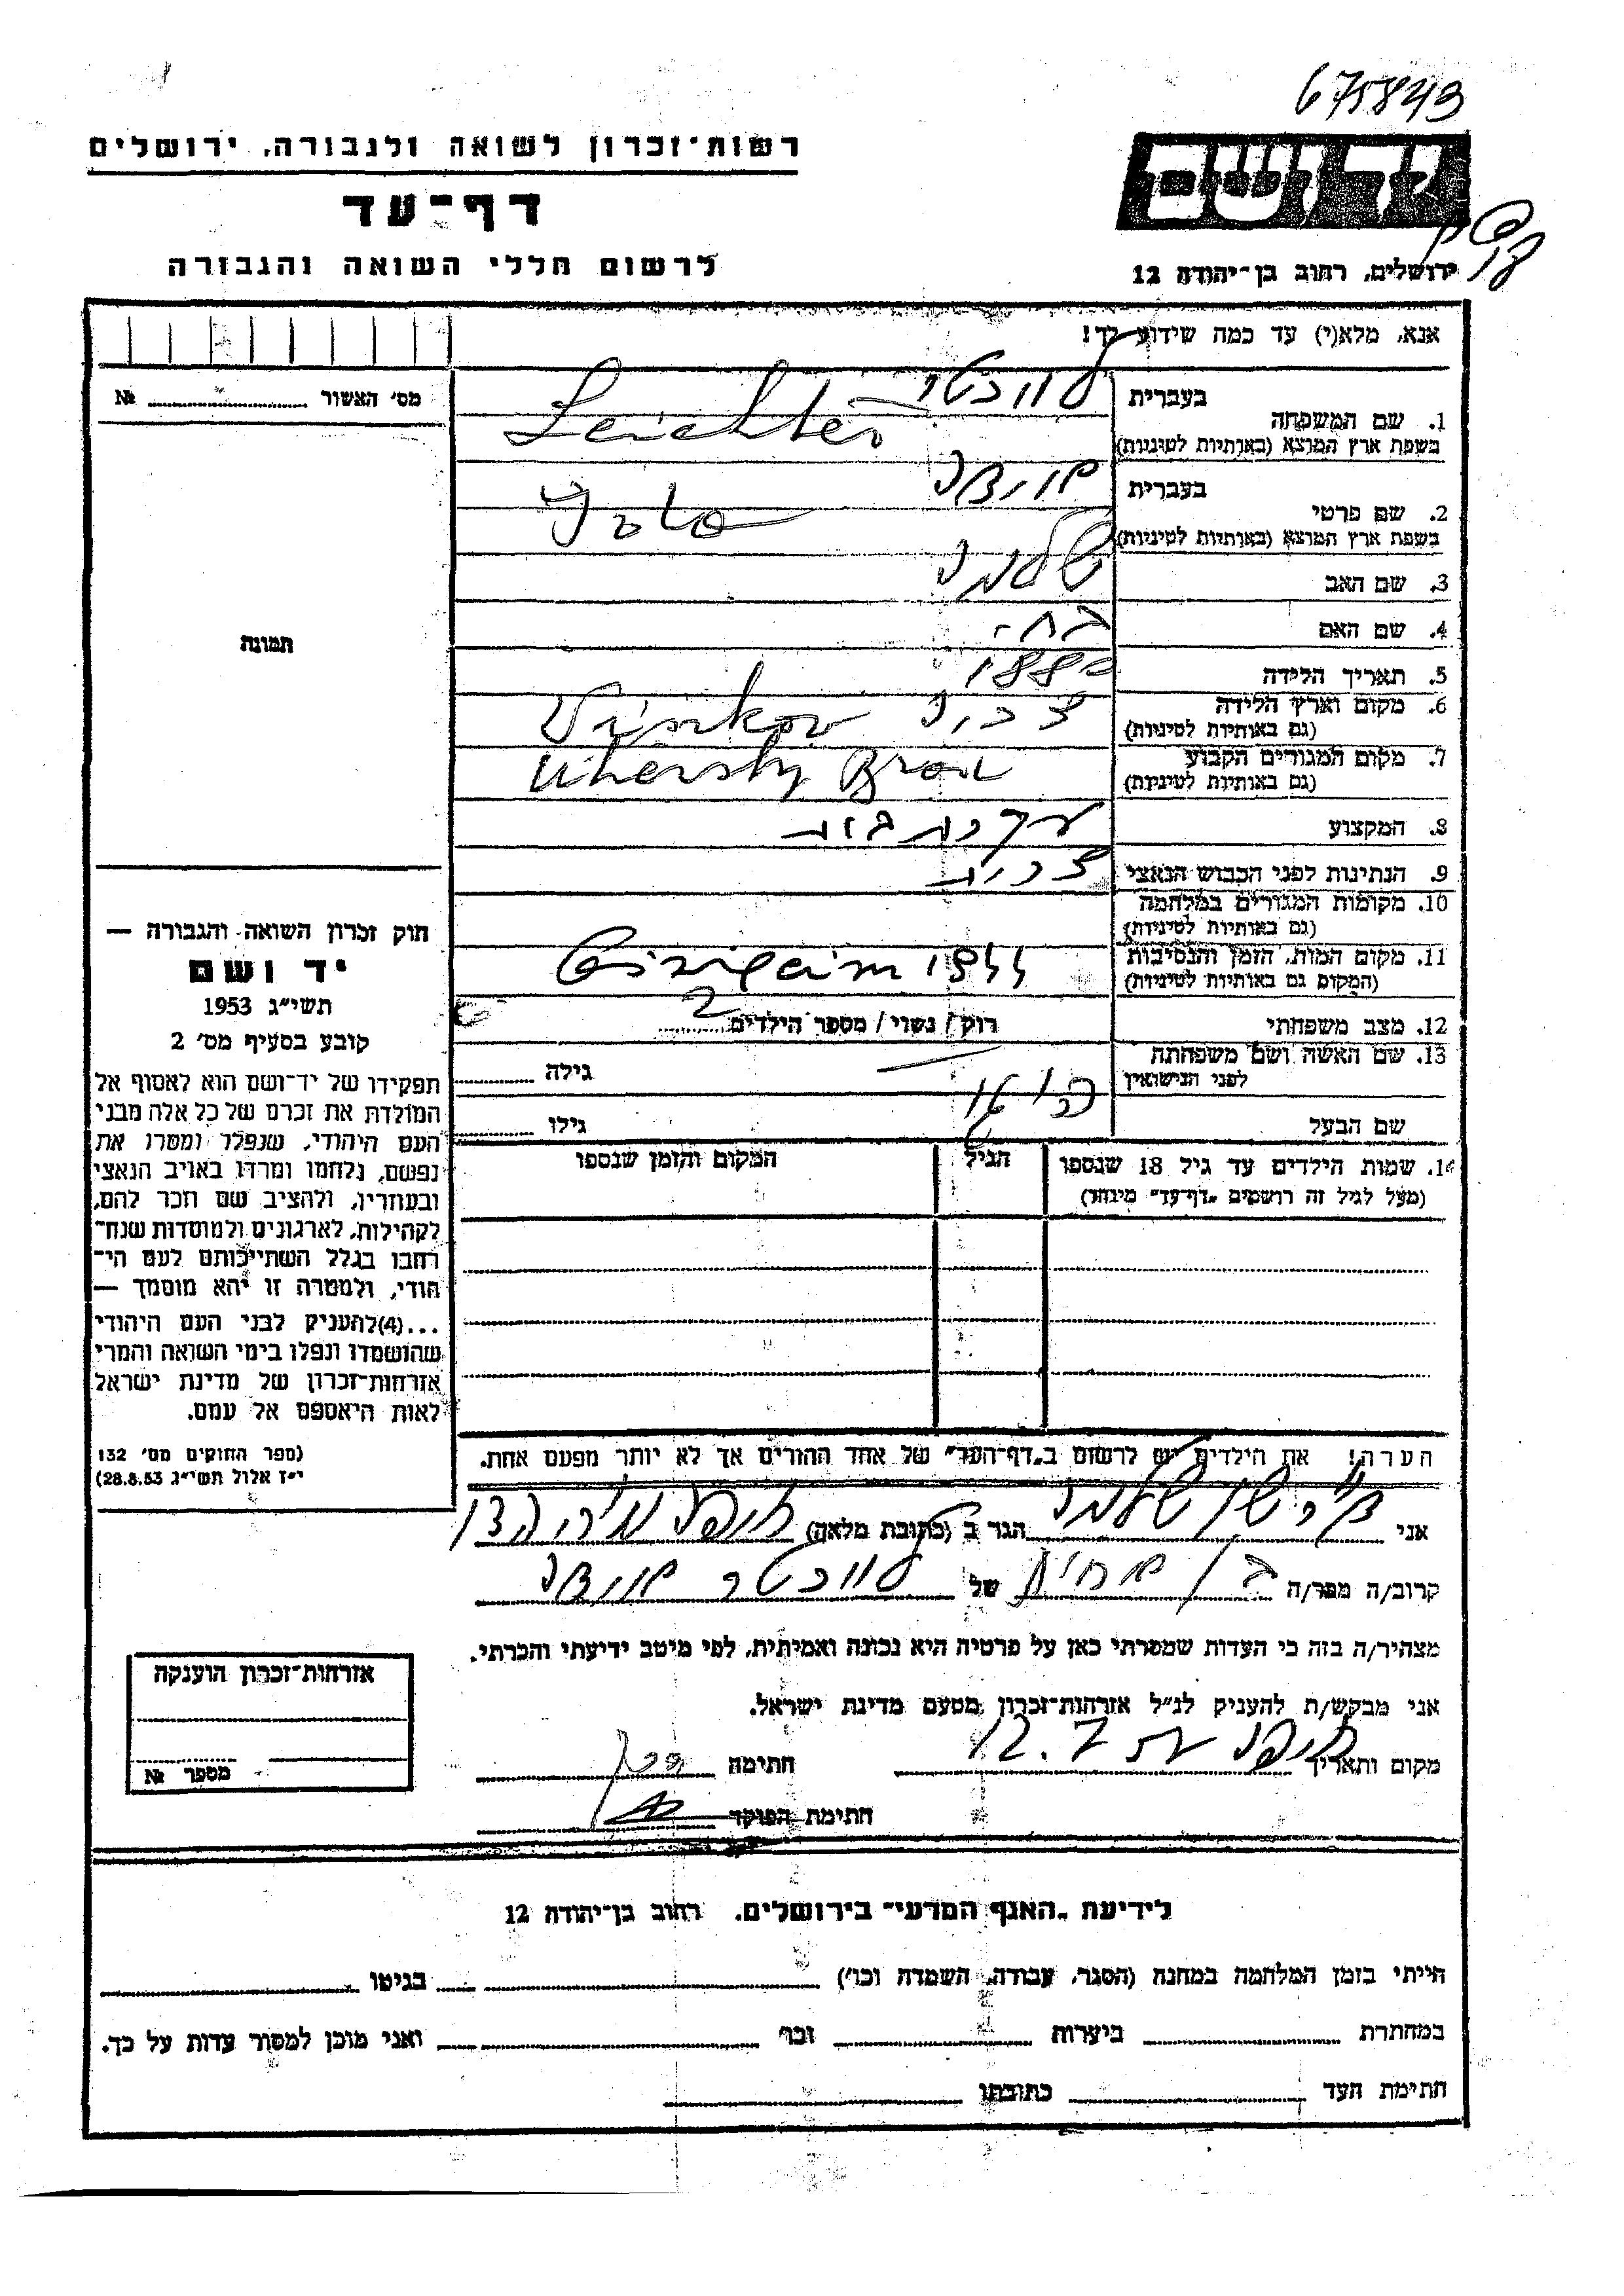 675843
רשות־זכרון לשואה ולגבורה, ירושלים
דף־עד
לרשום חללי השואה והגבורה
יד ושם
ירושלים, רחוב בן־יהודה 12
אנא, מלא(י) עד כמה שידוע לך!
מס׳ האשור № 
1. שם המשפחה בעברית
בשפת ארץ המוצא (באותיות לטיניות) Leichter
2. שם פרטי בעברית
בשפת ארץ המוצא (באותיות לטיניות)
3. שם האב שלמה
4. שם האם
5. תאריך הלידה 1880
6. מקום וארץ הלידה
(גם באותיות לטיניות)
7. מקום המגורים הקבוע Uhersky Brod
(גם באותיות לטיניות)
8. המקצוע עקרת בית
9. הנתינות לפני הכבוש הנאצי צכית
10. מקומות המגורים במלחמה
(גם באותיות לטיניות)
11. מקום המות, הזמן והנסיבות 1944
(המקום גם באותיות לטיניות)
12. מצב משפחתי רוק / נשוי / מספר הילדים 2
13. שם האשה ושם משפחתה
לפני הנישואין
גילה
שם הבעל
גילו
14. שמות הילדים עד גיל 18 שנספו
(מעל לגיל זה רושמים „דף־עד" מיוחד)
הגיל
המקום והזמן שנספו
הערה! את הילדים יש לרשום ב„דף־העד" של אחד ההורים אך לא יותר מפעם אחת.
תמונה
חוק זכרון השואה והגבורה —
יד ושם
תשי״ג 1953
קובע בסעיף מס׳ 2
תפקידו של יד־ושם הוא לאסוף אל
המולדת את זכרם של כל אלה מבני
העם היהודי, שנפלו ומסרו את
נפשם, נלחמו ומרדו באויב הנאצי
ובעוזריו, ולהציב שם וזכר להם,
לקהילות, לארגונים ולמוסדות שנח־
רבו בגלל השתייכותם לעם הי־
הודי, ולמטרה זו יהא מוסמך —
...(4) להעניק לבני העם היהודי
שהושמדו ונפלו בימי השואה והמרי
אזרחות־זכרון של מדינת ישראל
לאות היאספם אל עמם.
(ספר החוקים מס׳ 132
י״ז אלול תשי״ג 28.8.53)
אני שלמה הגר ב (כתובת מלאה) חיפה
קרוב/ה מפר/ה בן אחות של
מצהיר/ה בזה כי העדות שמסרתי כאן על פרטיה היא נכונה ואמיתית, לפי מיטב ידיעתי והכרתי.
אני מבקש/ת להעניק לנ״ל אזרחות־זכרון מטעם מדינת ישראל.
מקום ותאריך חיפה 12.7 חתימה
חתימת הפוקד
אזרחות־זכרון הוענקה
מספר №
לידיעת „האגף המדעי" בירושלים, רחוב בן־יהודה 12
הייתי בזמן המלחמה במחנה (הסגר, עבודה, השמדה וכו׳) בגיטו
במחתרת ביערות וכו׳ ואני מוכן למסור עדות על כך.
חתימת העד כתובתו